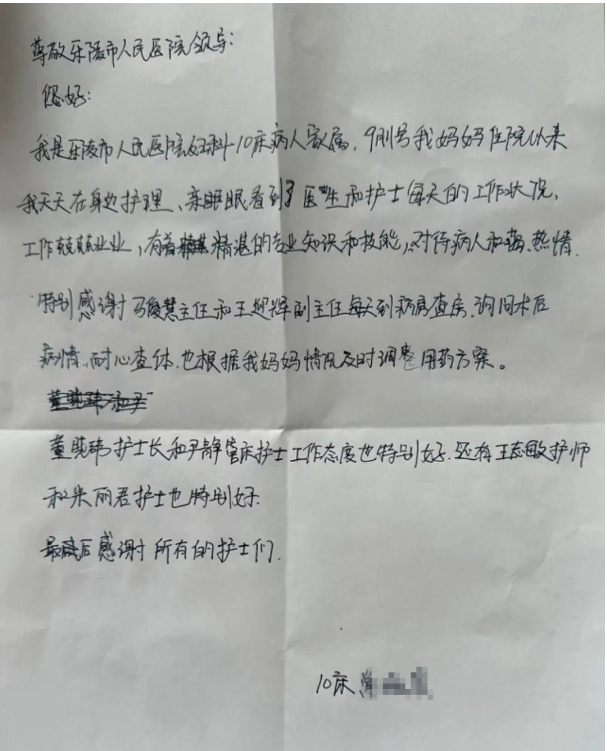 尊敬乐陵市人民医院领导:
您好:
我是乐陵市人民医院妇科10床病人家属, 9月1号我妈妈住院以来
我天天在身边护理、亲眼眼看到了医生和护士每天的工作状况,
工作兢兢业业, 有着精湛的专业知识和技能, 对待病人和蔼、热情.
特别感谢马俊慧主任和王迎辉副主任每天到病房查房、询问术后
病情、耐心查体、也根据我妈妈情况及时调整用药方案。
董晓玮护士长和尹静管床护士工作态度也特别好. 还有王志敏护师
和朱丽君护士也特别好.
最后感谢所有的护士们.
10床